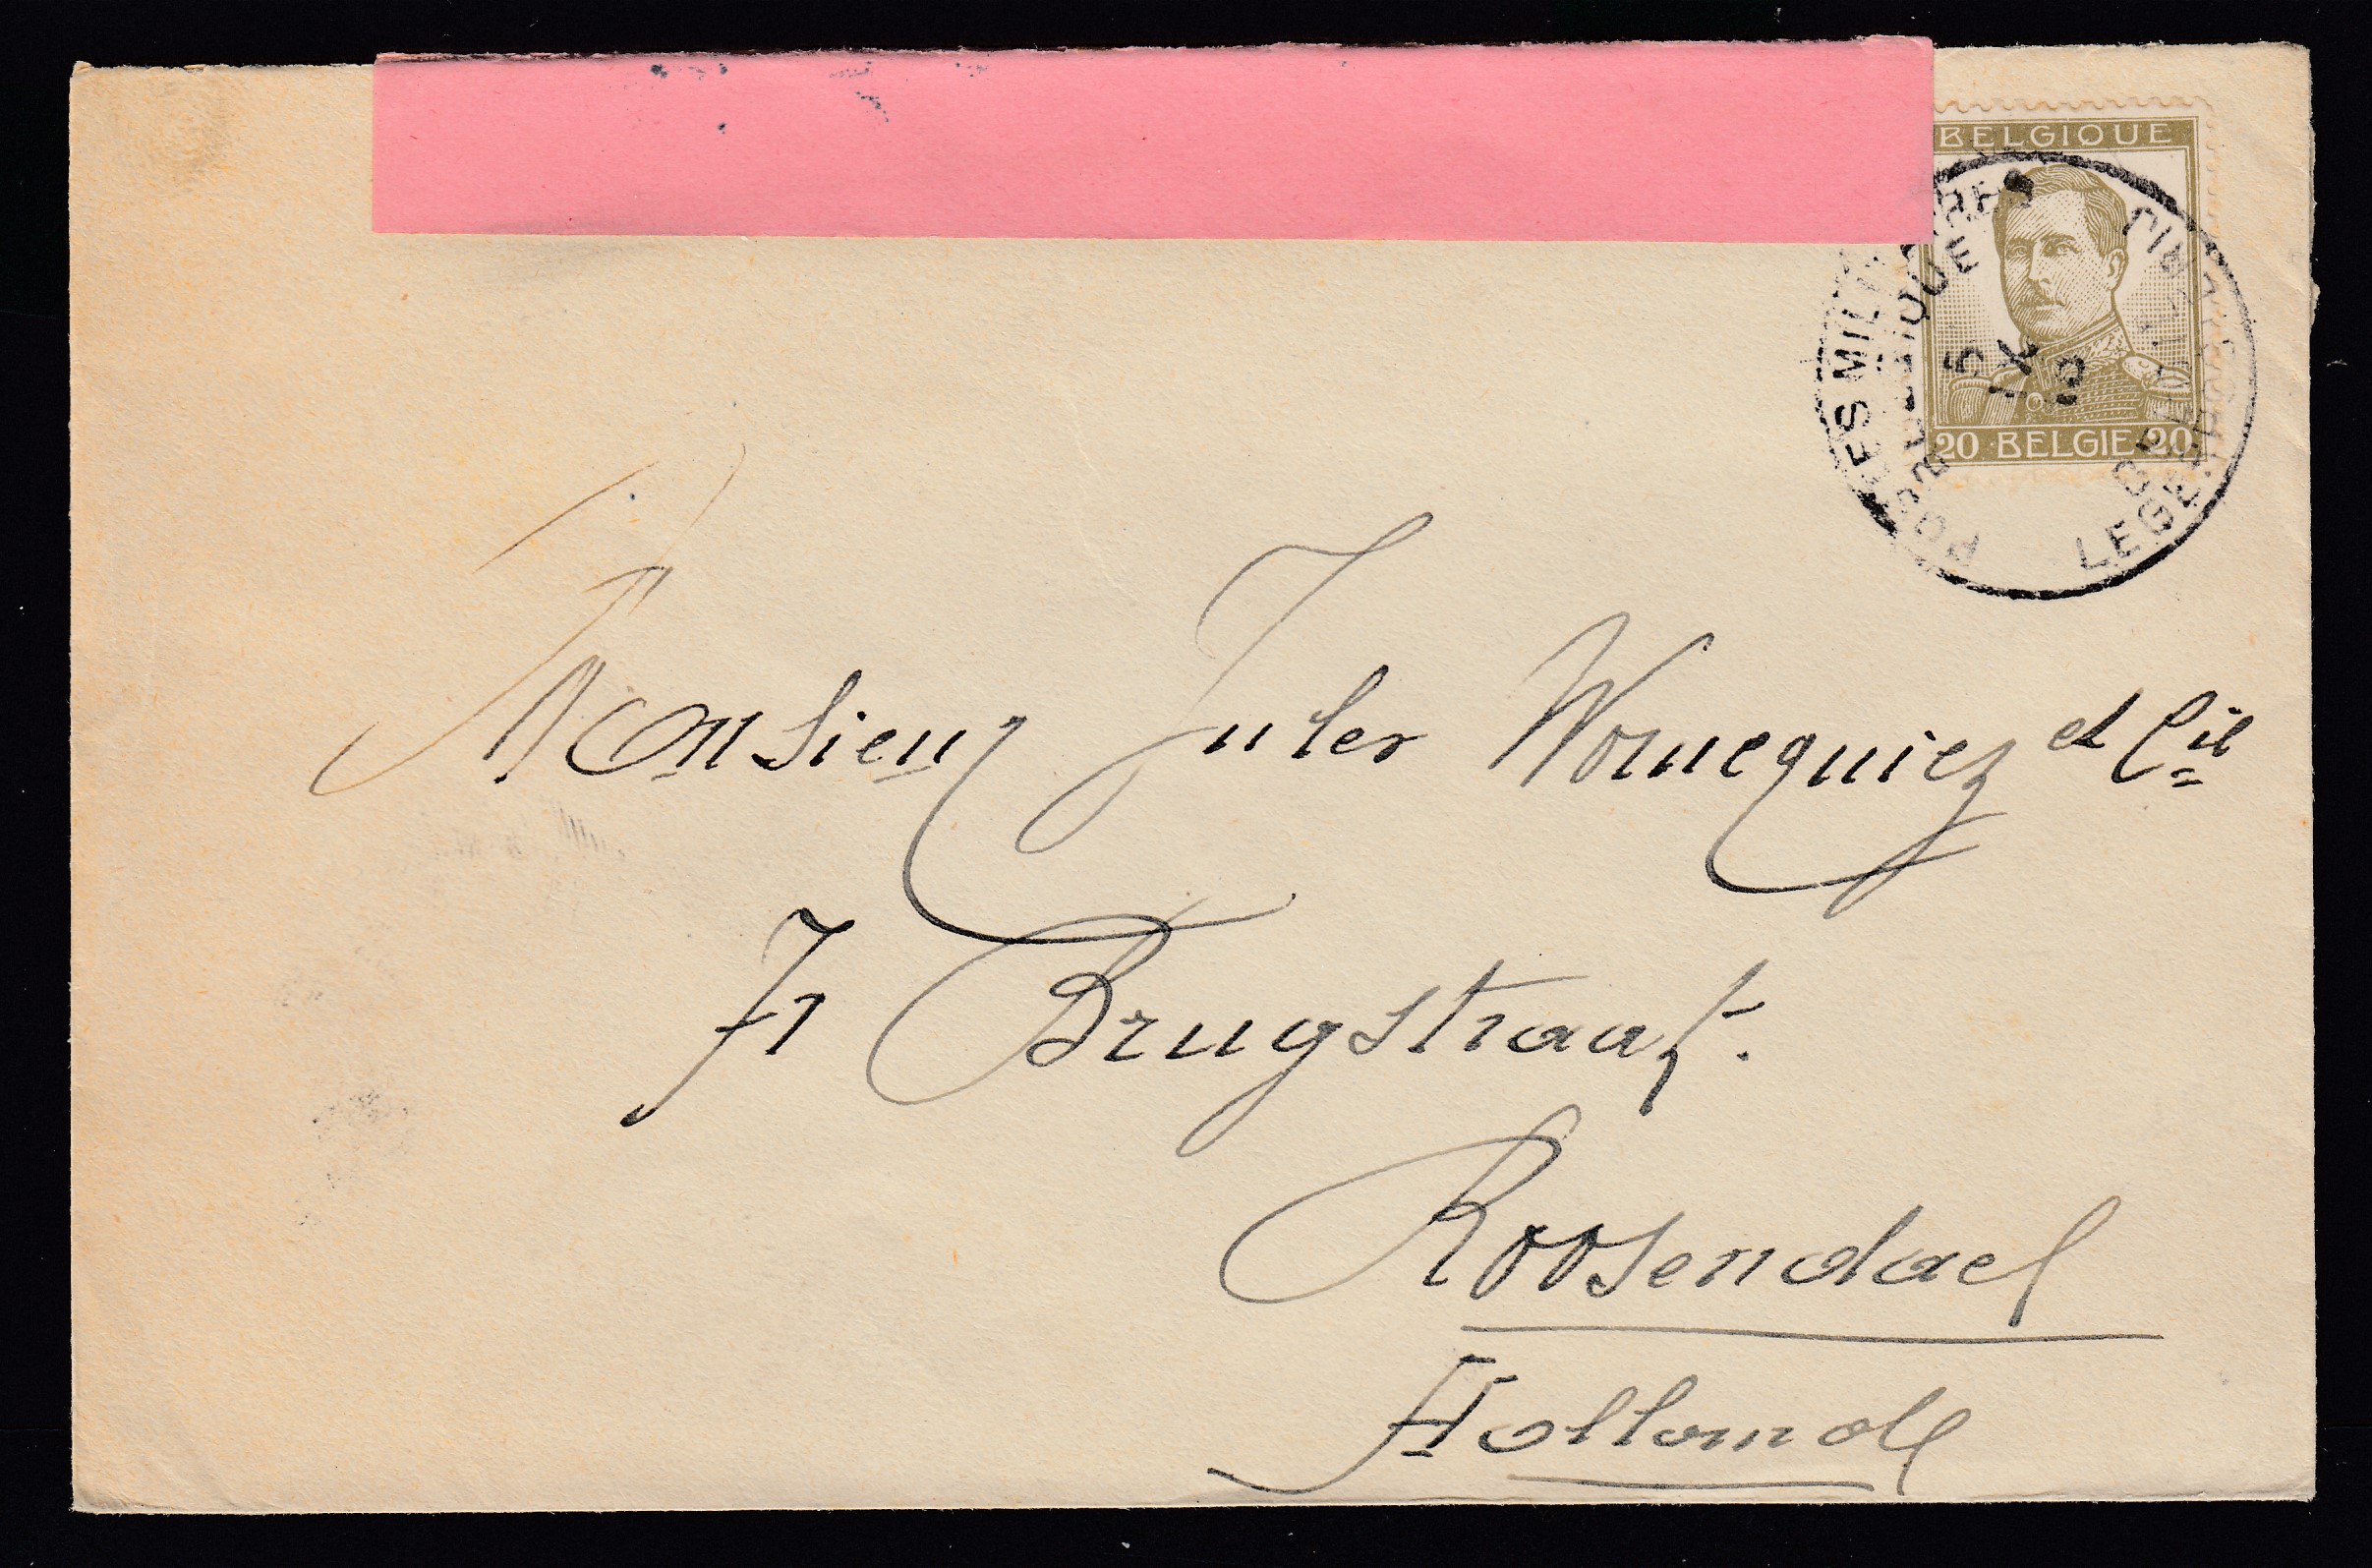 BELGIQUE
20 BELGIE 20
POSTES MILITAIRES
BELGIQUE
5
IX
15
LEGERPOSTERIJ
Monsieur Jules Womequiez et Cie
71 Brugstraat.
Roosendael
Hollande